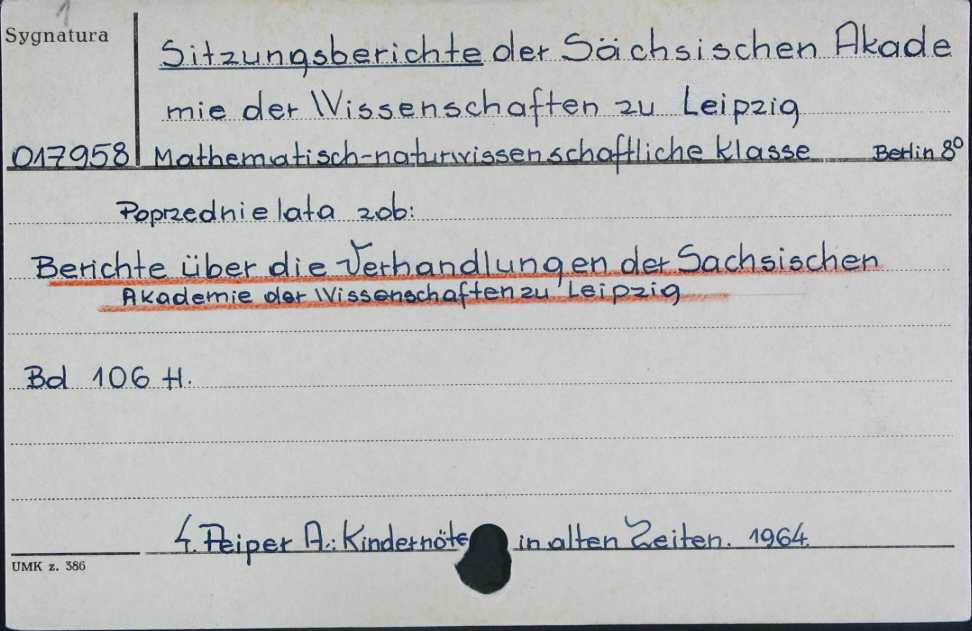 1
Sygnatura
Sitzungsberichte der Sächsischen Akade
mie der Wissenschaften zu Leipzig
017958 Mathematisch-naturwissenschaftliche Klasse Berlin 8°
Poprzednie lata zob:
Berichte über die Verhandlungen der Sachsischen
Akademie der Wissenschaften zu Leipzig
Bd 106 H.
4. Peiper A.: Kindernöte in alten Zeiten. 1964.
UMK z. 386